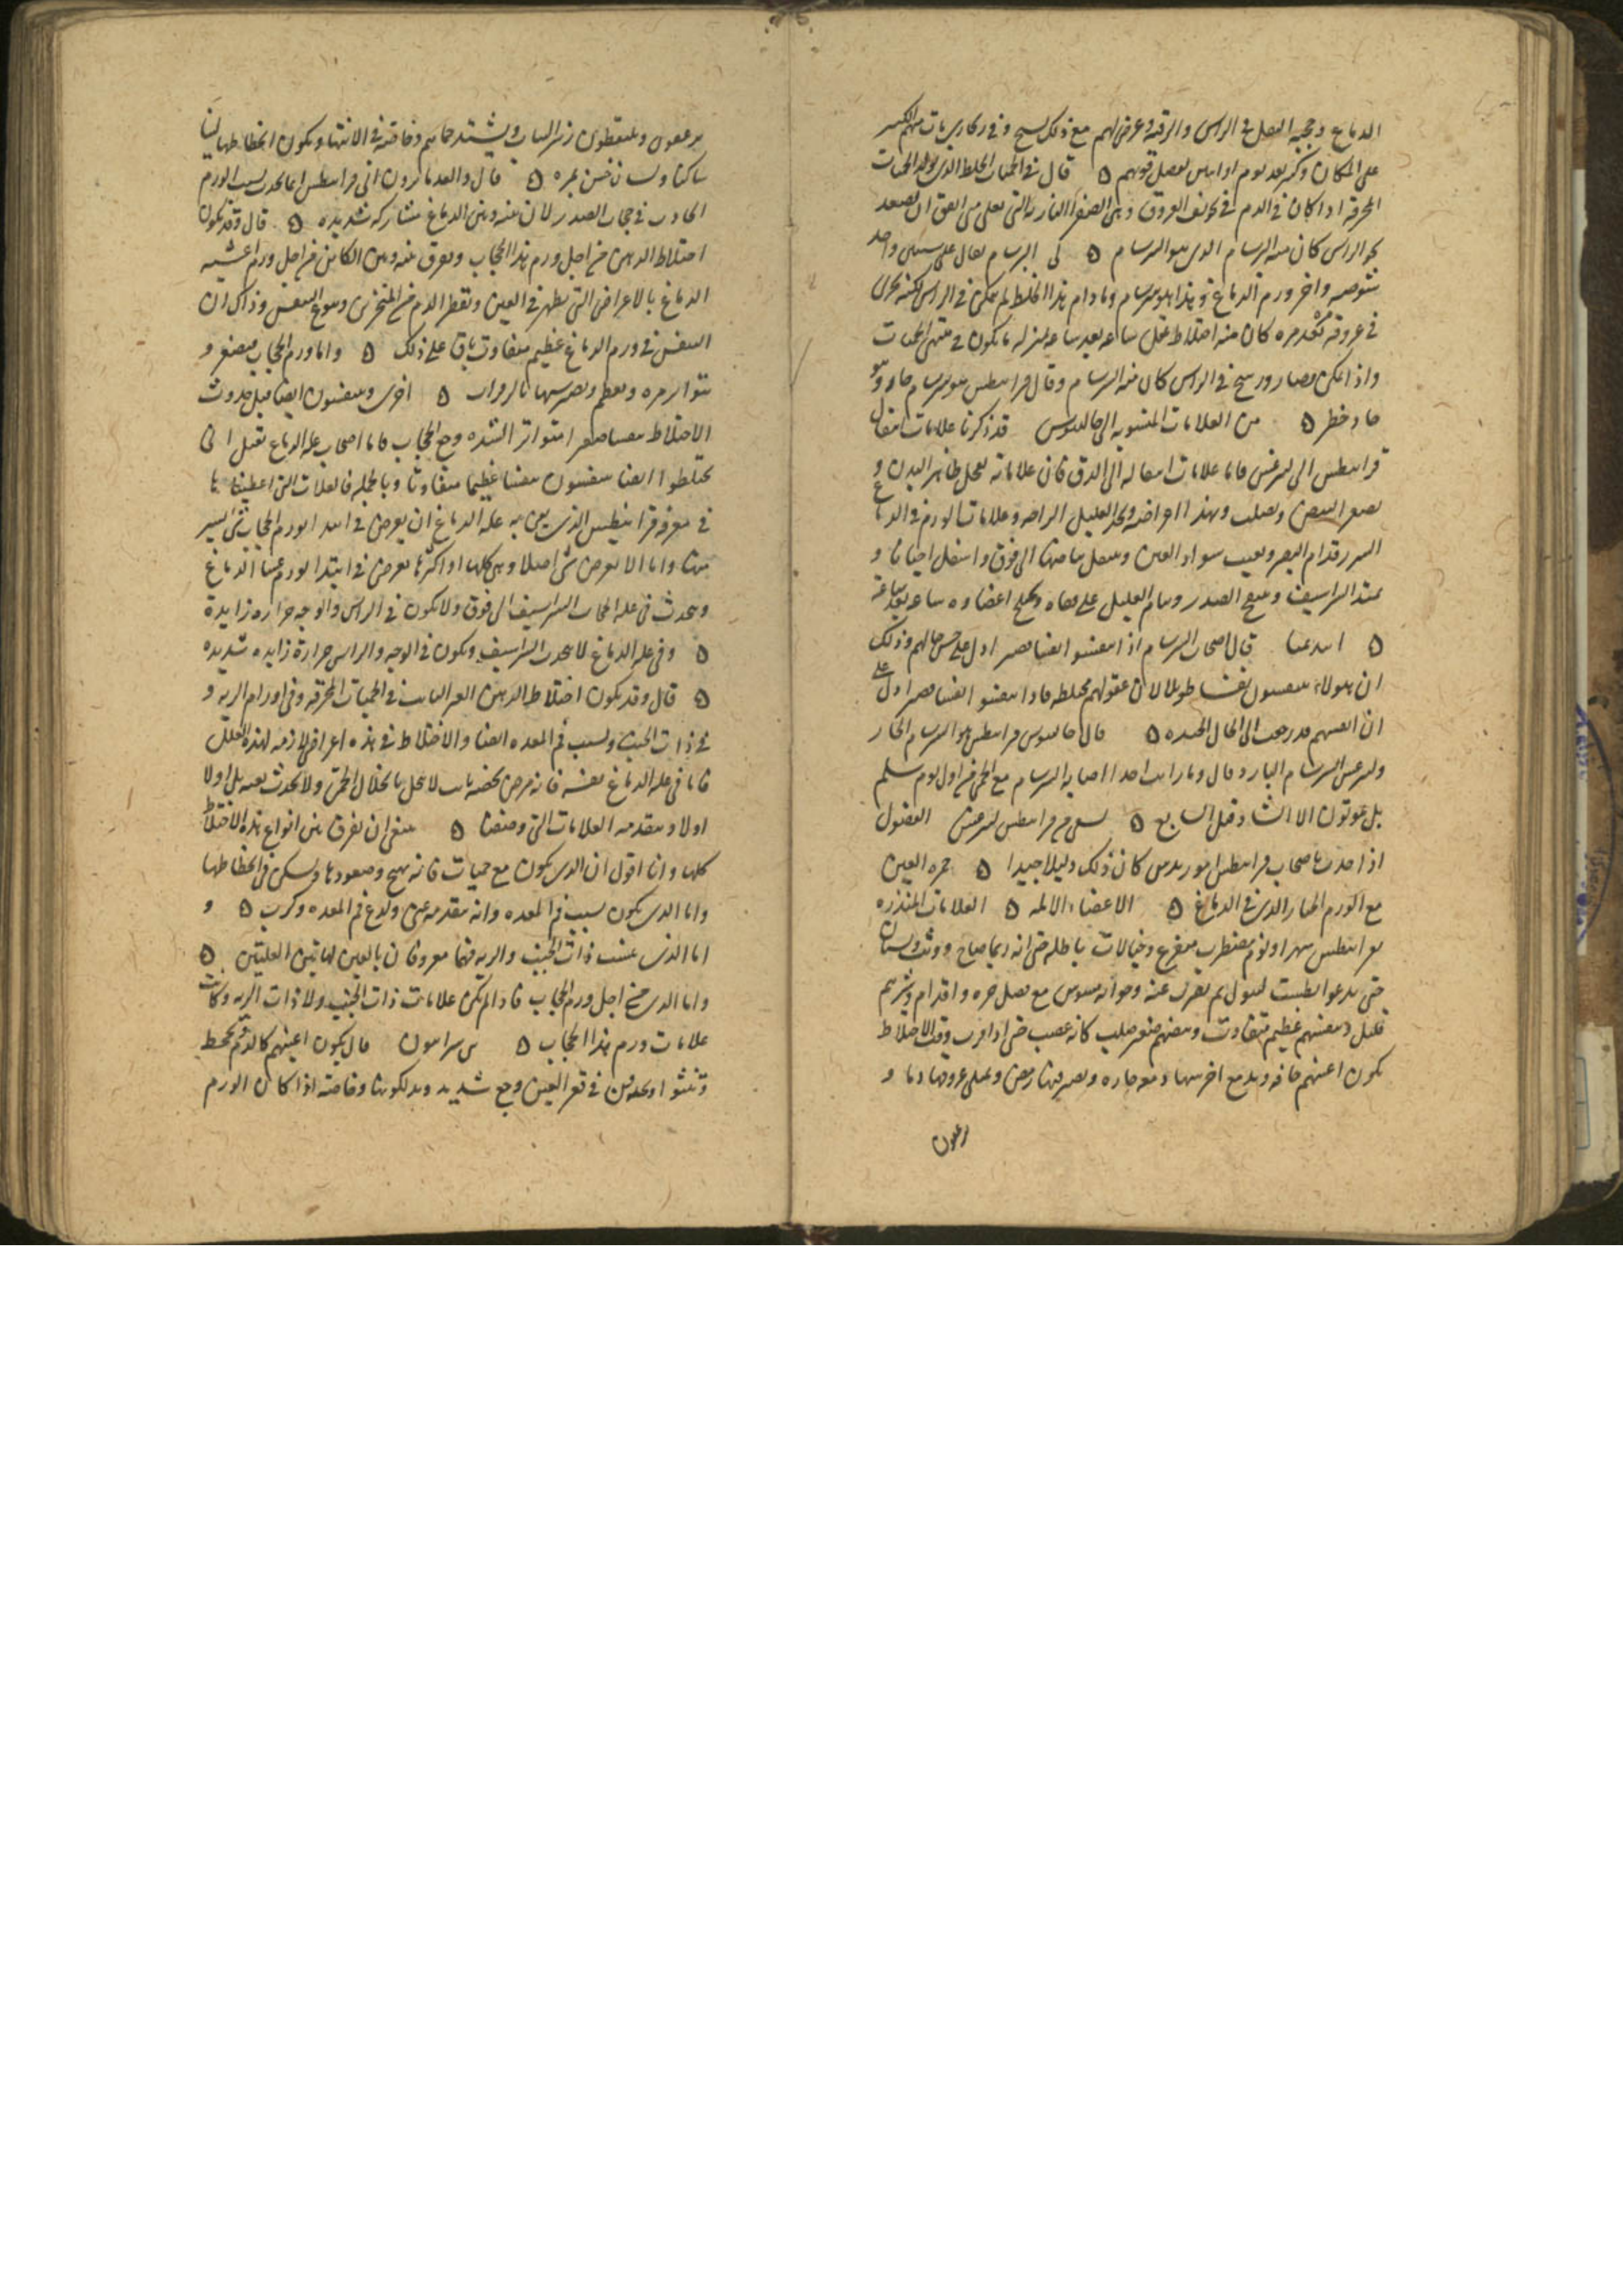 الدماغ وجحبه الثقل فى الراس والرقبه وعرض لهم مع ذلك تشنج وفى
على المكان وكثير بعد يوم او اثنين لفضل قوتهم ه قال فى الحميات الخلط الذى يولد الحميات
المحرقة اذا كان فى الدم فى تجويف العروق وهى الصفرا الناريه التى تغلى من الفوق ان تصعد
نحو الراس كان منه البرسام الذى هو السرسام ه البرسام يقال على شيئين واحد
بتوصه واخر ورم الدماغ وما دام هذا الخلط لم يتمكن فى الراس لكنه يجرى
فى عروقه كان منه اختلاط عقل ساعه بعد ساعه بمنزله ما يكون فى منتهى الحميات
واذا تمكن وصار ورسخ فى الراس كان منه السرسام وقال قرانيطس هو سرسام حار وهو
حاد خطر ه من العلامات المنسوبه الى جالينوس قد ذكرنا علامات انتقال
قرانيطس الى ليثرغس فاما علامات انتقاله الى الدق فان علاماته
يصغر النبض ويصلب ويهدا اعراضه ويجد العليل الراحه وعلامات الورم فى الدماغ
قدام البصر ويغيب سواد العين وينقل بياضها الى فوق واسفل احيانا و
يمتد الشراسيف وينتفخ الصدر وينام العليل على قفاه ويختلج اعضاوه ساعه بعد ساعة
ه ابيذيميا قال اصحاب السرسام اذا تنفسوا نفسا صغيرا دل على حسن حالهم وذلك
ان هولاء يتنفسون نفسا طويلا لان عقولهم مختلطه فاذا تنفسوا نفسا صغيرا دل على
ان انفسهم قد رجعت الى الحال الجيده ه قال جالينوس قرانيطس هو السرسام الحار
وليثرغس السرسام البارد قال وما رايت احدا اصابه السرسام مع الحمى فى اول يوم سلم
بل يموتون الا الشاذ قبل السابع ه قرانيطس ليثرغس الفصول
اذا حدث باصحاب قرانيطس بواسير كان ذلك دليلا جيدا ه حمره العين
مع الورم الحار الذى فى الدماغ ه الاعضاء الالمه ه العلامات المنذره
بقرانيطس سهر او نوم مضطرب مفزع وخيالات باطله حتى انه ربما صاح ووثب ونسيان
حتى يدعوا بطست ليبول ثم يضرب عنه وجوابه مشوش مع فضل جره واقدام وشربهم
قليل وتنفسهم عظيم متفاوت ونبضهم صغير صلب كانه عصب حتى اذا قرب وقت الاختلاط
يكون اعينهم جافه ويدمع احديهما دمعه حاره ويصير فيها رمص ويمتلى عروقها دما و
يرعفون ويلتقطون زئبر الثياب ويشتد حماهم وخاصة فى الانتها ويكون انحطاطها لينا
ساكنا ولسان خشن بمره ه قال والقدما يرون ان قرانيطس انما يحدث بسبب الورم
الحادث فى حجاب الصدر لان بينه وبين الدماغ مشاركه شديده ه قال وقد يكون
اختلاط الذهن من اجل ورم هذا الحجاب ويفرق بينه وبين الكاين من اجل ورم اغشيه
الدماغ بالاعراض التى تظهر فى العين وتقطر الدم من المنخرين ونوع التنفس وذاك ان
التنفس فى ورم الدماغ عظيم متفاوت باق على ذلك ه واما ورم الحجاب فيصغر و
يتواتر مره ويعظم ويصير شبيها بالزفرات ه اخرى ويتنفسون ايضا قبل حدوث
الاختلاط نفسا صغيرا متواترا لشده وجع الحجاب فاما اصحاب عله الدماغ فقبل ان
يختلطوا ايضا يتنفسون نفسا عظيما متفاوتا وبالجمله فالعلامات التى اعطيناها
فى معرفه قرانيطس الذى يعنى به عله الدماغ ان يعرض فى ابتدا ورم الحجاب شى يسير
منها واما الا يعرض شى اصلا وهى كلها او اكثرها يعرض فى ابتدا ورم غشا الدماغ
ويحدث فى عله الحجاب الشراسيف الى فوق ولا يكون فى الراس والوجه حراره زايدة
ه وفى عله الدماغ لا يجذب الشراسيف ويكون فى الوجه والراس حرارة زايده شديده
ه قال وقد يكون اختلاط الذهن الغير الثابت فى الحميات المحرقه وفى اورام الريه و
فى ذات الجنب وبسبب فم المعده ايضا والاختلاط فى هذه اعراض لازمه لهذه العلل
فاما فى عله الدماغ نفسه فانه مرض يخصه ثابت لا ينحل بانحلال الحمى ولا يحدث بغته بل اولا
اولا ويتقدمه العلامات التى وصفنا ه ينبغى ان يفرق بين انواع هذه الاختلاط
كلها وانا اقول ان الذى يكون مع حميات فانه يهيج وصعودها ويسكن فى انحطاطها
واما الذى يكون بسبب فم المعده فانه يتقدمه غثى ولذع فم المعده وكرب ه و
اما الذى بسبب ذات الجنب والريه فهما معروفان بالعين لهاتين العلتين ه
واما الذى من اجل ورم الحجاب فاذا لم تكن علامات ذات الجنب ولا ذات الريه وكانت
علامات ورم هذا الحجاب ه سراسيون قال يكون اعينهم كالدم
وتنتو او يجدون فى قعر العين وجع شديد ويدلكونها وخاصة اذا كان الورم